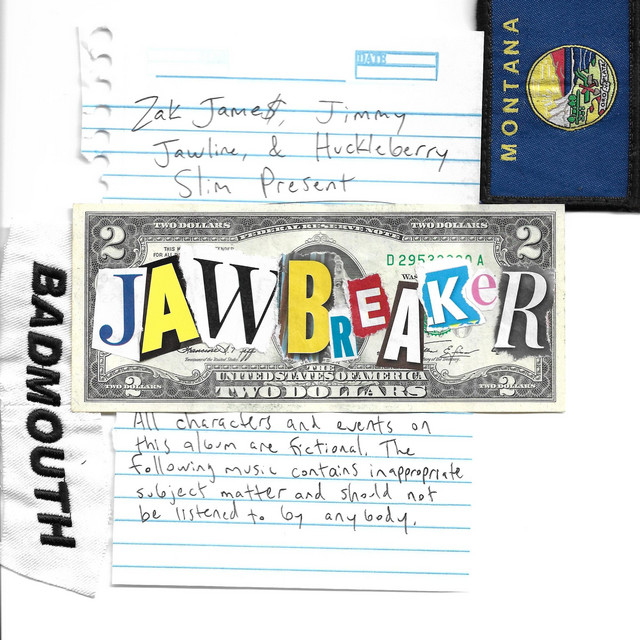 DATE
MONTANA
Zak Jame$, Jimmy
Jawline, & Huckleberry
Slim Present
2 TWO DOLLARS TWO DOLLARS 2
FEDERAL RESERVE NOTE
D 2953
JAWBREAKeR
THE
UNITED STATES OF AMERICA
TWO DOLLARS
TWO DOLLARS 2 2 TWO DOLLARS
BADMOUTH
All characters and events on
this album are fictional. The
following music contains inappropriate
subject matter and should not
be listened to by anybody.